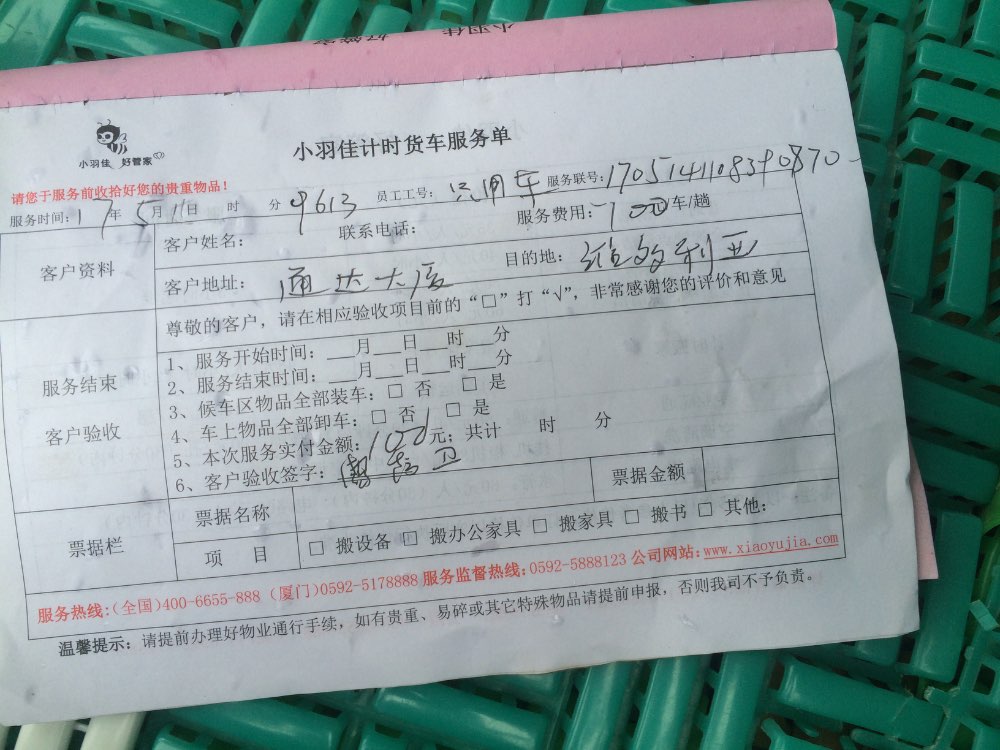 小羽佳 好管家
小羽佳 好管家
小羽佳计时货车服务单
请您于服务前收拾好您的贵重物品！
服务时间：17年5月11日 时 分 9613 员工工号：只用车 服务联号：1705141108390870
客户资料
客户姓名： 联系电话： 服务费用：100元/车/趟
客户地址：通达大厦 目的地：维多利亚
服务结束
客户验收
尊敬的客户，请在相应验收项目前的“□”打“√”，非常感谢您的评价和意见
1、服务开始时间：___月___日___时___分
2、服务结束时间：___月___日___时___分
3、候车区物品全部装车：□ 否 □ 是
4、车上物品全部卸车：□ 否 □ 是
5、本次服务实付金额：100元；共计 时 分
6、客户验收签字：
票据栏
票据名称 票据金额
项 目 □ 搬设备 □ 搬办公家具 □ 搬家具 □ 搬书 □ 其他：
服务热线：(全国)400-6655-888 (厦门)0592-5178888 服务监督热线：0592-5888123 公司网站：www.xiaoyujia.com
温馨提示：请提前办理好物业通行手续，如有贵重、易碎或其它特殊物品请提前申报，否则我司不予负责。